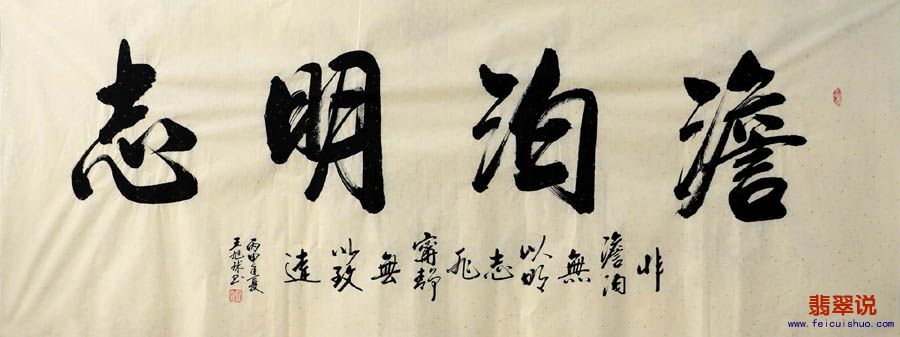 澹泊明志
非澹泊無以明志非寧靜無以致遠
丙申夏
王旭书
翡翠说
www.feicuishuo.com